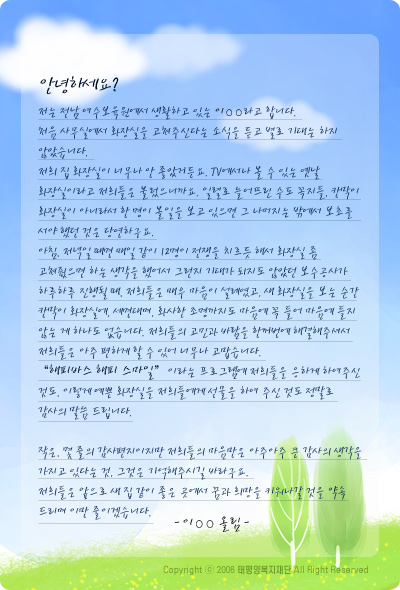 안녕하세요?
저는 전남 여수보육원에서 생활하고 있는 이○○라고 합니다.
처음 사무실에서 화장실을 고쳐주신다는 소식을 듣고 별로 기대는 하지
않았습니다.
저희 집 화장실이 너무나 안 좋았거든요. TV에서나 볼 수 있는 옛날
화장실이라고 저희들은 불렀으니까요. 일렬로 늘어뜨린 수도 꼭지들, 칸막이
화장실이 아니라서 한 명이 볼일을 보고 있으면 그 나머지는 밖에서 보초를
서야 했던 것은 당연하구요.
아침, 저녁일 때면 매일 같이 12명이 전쟁을 치르듯 해서 화장실 좀
고쳐줬으면 하는 생각을 했어서 그런지 기대가 되지도 않았던 보수공사가
하루하루 진행될 때, 저희들은 매우 마음이 설레었고, 새 화장실을 보는 순간
칸막이 화장실에, 세면대며, 화사한 조명까지도 마음에 꼭 들어 마음에 들지
않는 게 하나도 없습니다. 저희들의 고민과 바람을 한꺼번에 해결해주셔서
저희들은 아주 편하게 할 수 있어 너무나 고맙습니다.
"해피바스 해피 스마일" 이라는 프로그램에 저희들을 응하게 하여주신
것도, 이렇게 예쁜 화장실을 저희들에게 선물을 하여 주신 것도 정말로
감사의 말씀 드립니다.
작은, 몇 줄의 감사편지이지만 저희들의 마음만은 아주아주 큰 감사의 생각을
가지고 있다는 것, 그것을 기억해주시길 바라구요.
저희들은 앞으로 새 집 같이 좋은 곳에서 꿈과 희망을 키워나갈 것을 약속
드리며 이만 줄이겠습니다.
-이○○ 올림-
Copyright ⓒ 2006 태평양복지재단 All Right Reserved